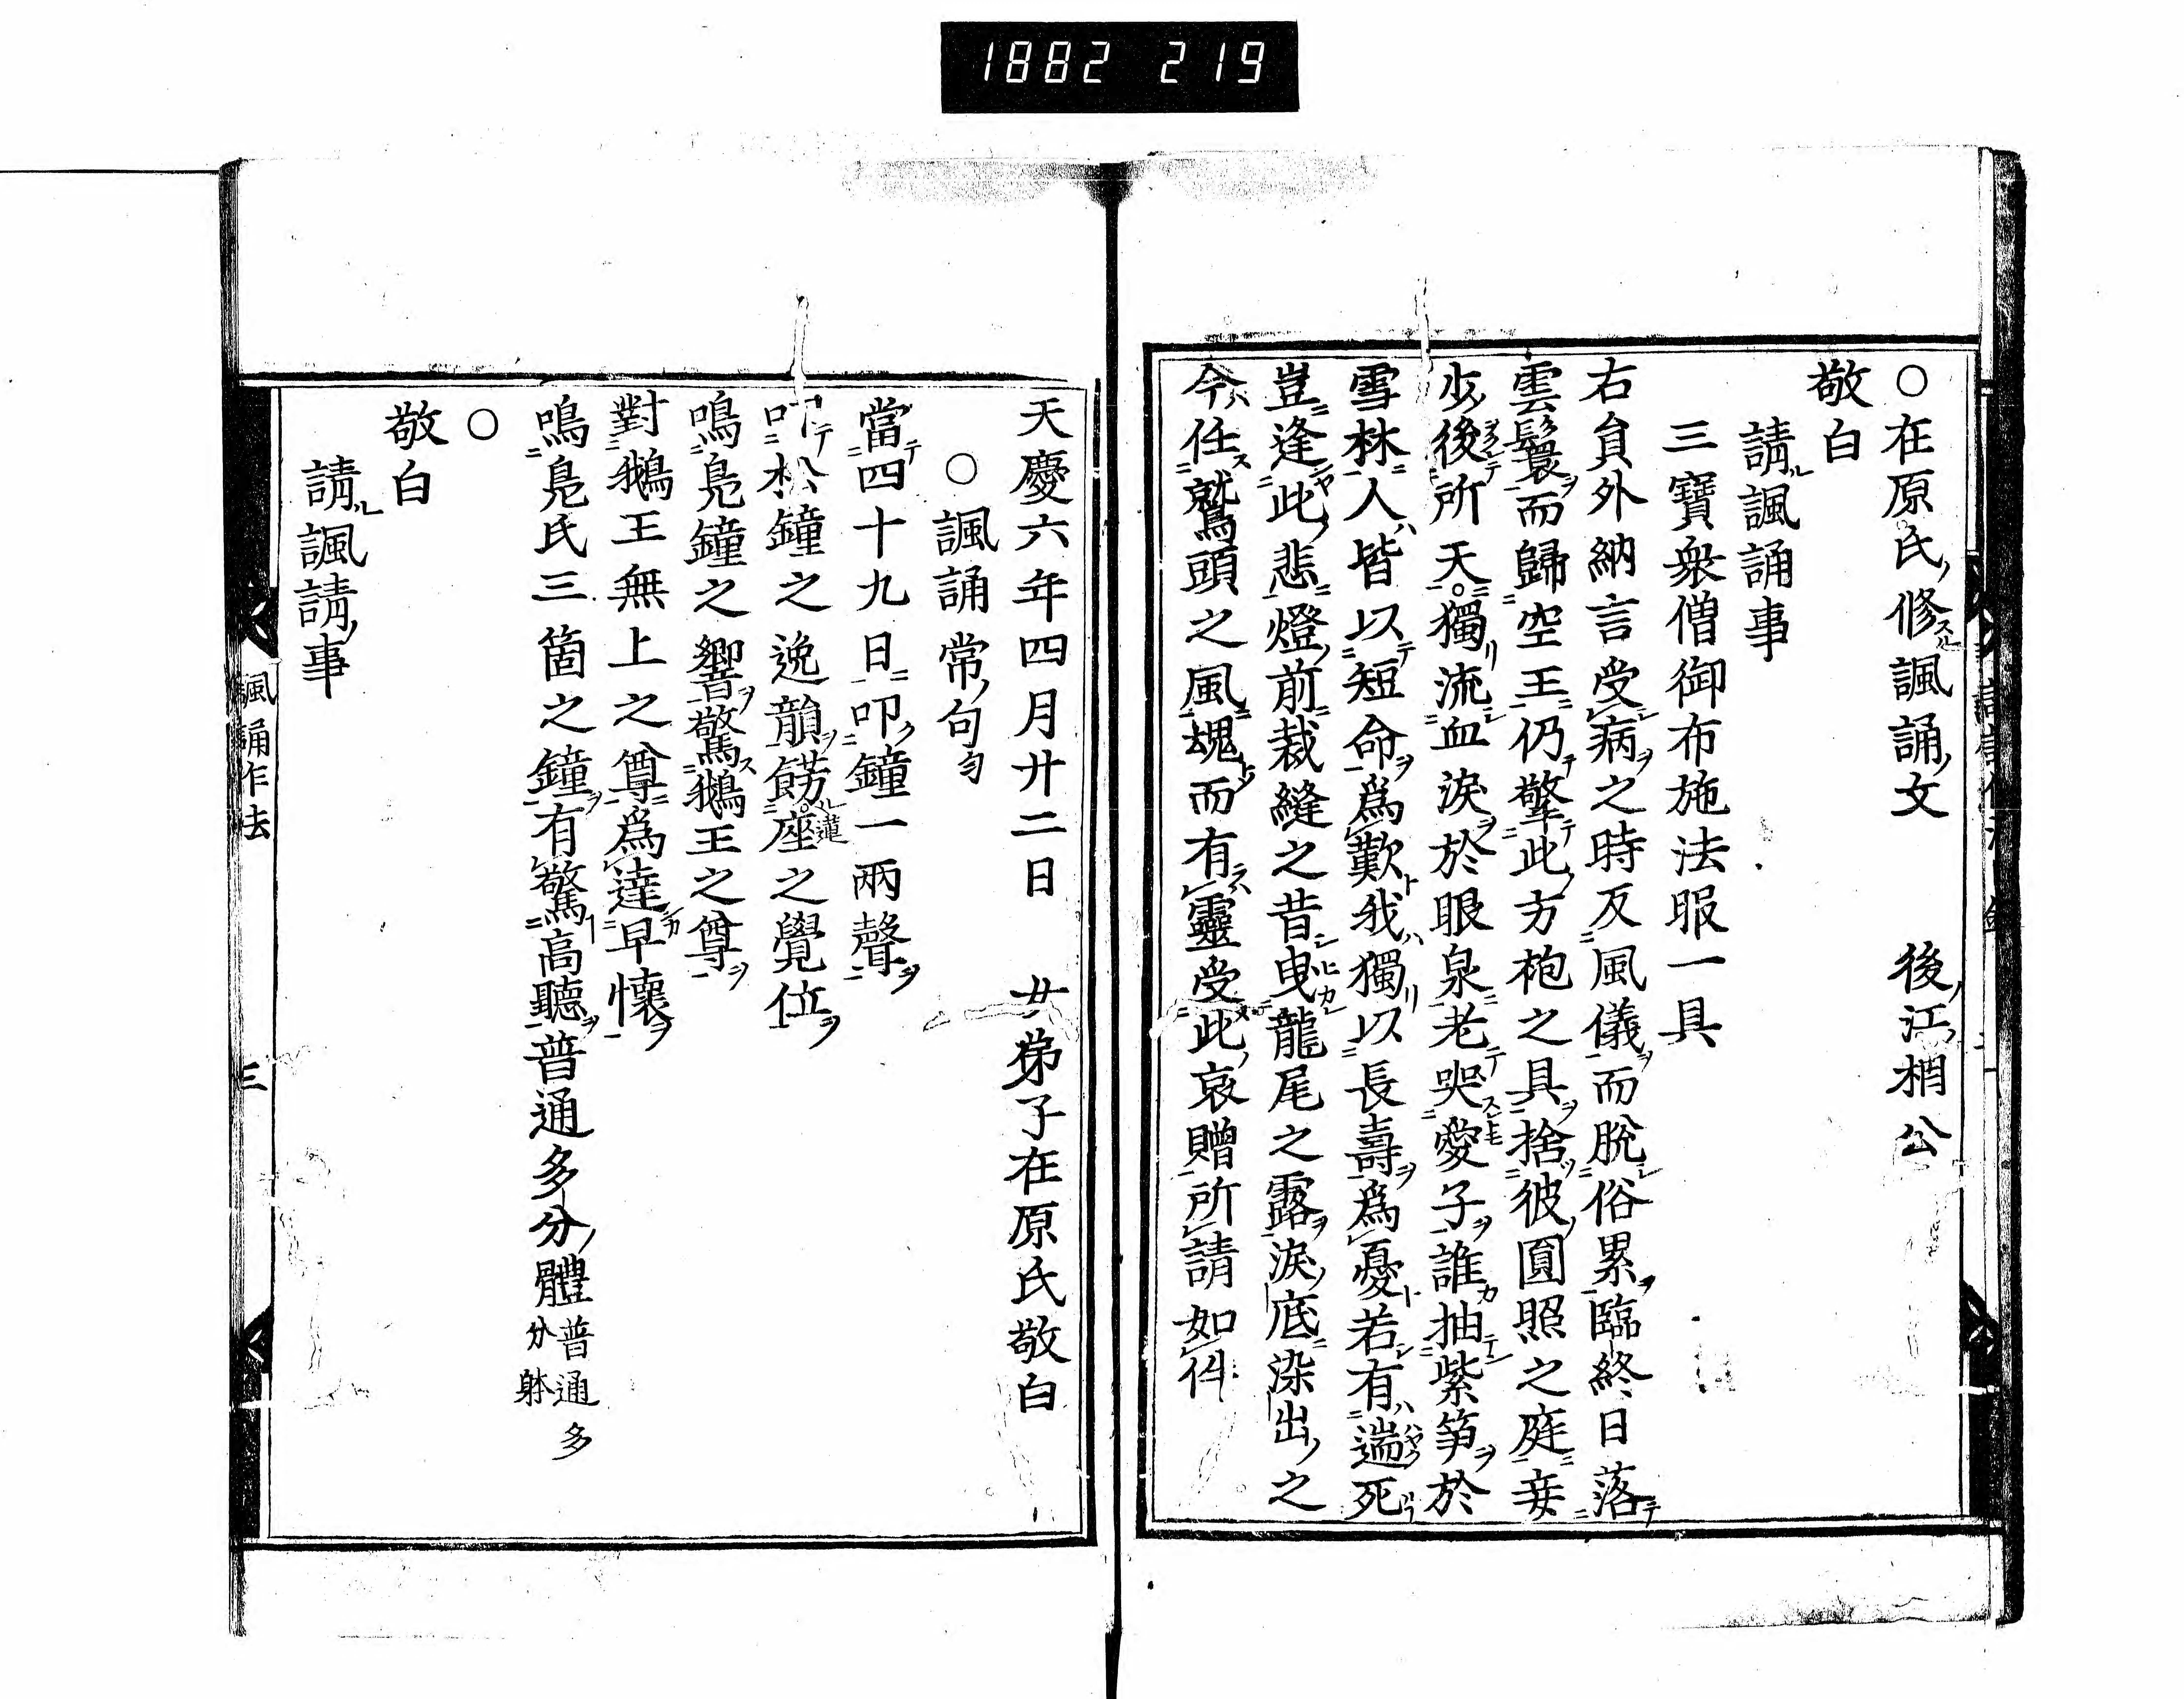 1882 219
○在原氏修諷誦文　後江相公
敬白
請諷誦事
三寶衆僧御布施法服一具
右貟外納言受病之時反風儀而脫俗累臨終日落
雲鬟而歸空王仍擎此方袍之具捨彼圓照之庭妾
少後所天獨流血淚於眼泉老哭愛子誰抽紫笋於
雪林人皆以短命爲歎我獨以長壽爲憂若有遄死
豈逢此悲燈前裁縫之昔曳龍尾之露淚底染出之
今任鷲頭之風魂而有靈受此哀贈所請如件
天慶六年四月廿二日　女弟子在原氏敬白
○諷誦常句
當四十九日叩鐘一兩聲
叩松鐘之逸韻餝蓮座之覺位
鳴鳬鐘之響驚鵝王之尊
對鵝王無上之尊爲達早懷
鳴鳬氏三箇之鐘有驚高聽普通多分體普通多分躰
○
敬白
請諷請事
諷誦作法　三